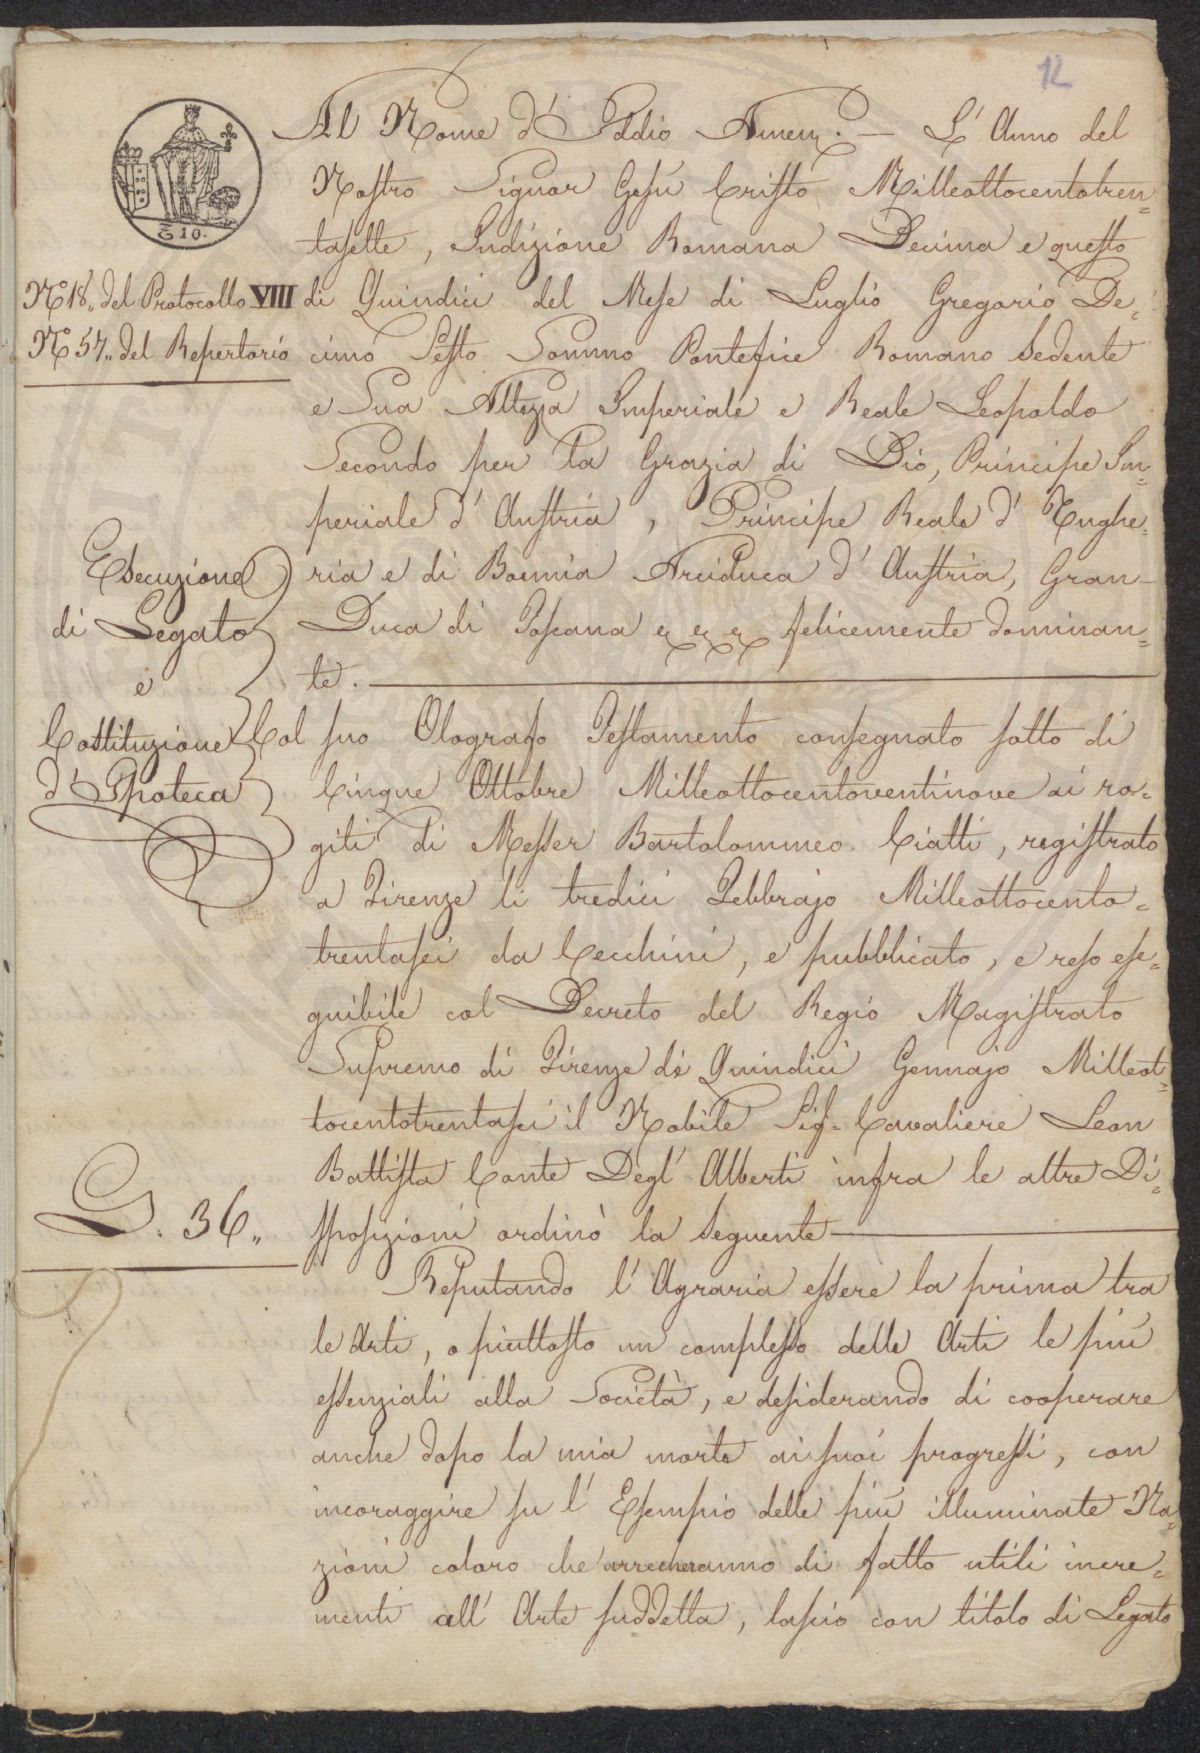 12
Al Nome d'Iddio Amen. — L'Anno del
Nostro Signor Gesù Cristo Milleottocentotren=
tasette, Indizione Romana Decima e questo
N.o 18,, del Protocollo VIII di Quindici del Mese di Luglio Gregorio De=
N.o 57,, del Repertorio cimo Sesto Sommo Pontefice Romano Sedente
e Sua Altezza Imperiale e Reale Leopoldo
Secondo per la Grazia di Dio, Principe Im=
periale d'Austria, Principe Reale d'Unghe=
Esecuzione ria e di Boemia Arciduca d'Austria, Gran=
di Legato Duca di Toscana & & & felicemente dominan=
e te.
Costituzione Col suo Olografo Testamento consegnato sotto di
d'Ipoteca Cinque Ottobre Milleottocentoventinove ai ro=
giti di Messer Bartolommeo Ciatti, registrato
a Firenze li tredici Febbrajo Milleottocento=
trentasei da Cecchini, e pubblicato, e reso ese=
guibile col Decreto del Regio Magistrato
Supremo di Firenze di Quindici Gennajo Milleot=
tocentotrentasei il Nobile Sig.r Cavaliere Leon
Battista Conte Degl'Alberti infra le altre Di=
36,, sposizioni ordinò la seguente
Reputando l'Agraria essere la prima tra
le Arti, o piuttosto un complesso delle Arti le più
essenziali alla Società, e desiderando di cooperare
anche dopo la mia morte ai suoi progressi, con
incoraggire su l'Esempio delle più illuminate Na=
zioni coloro che arrecheranno di fatto utili incre=
menti all'Arte suddetta, lascio con titolo di Legato